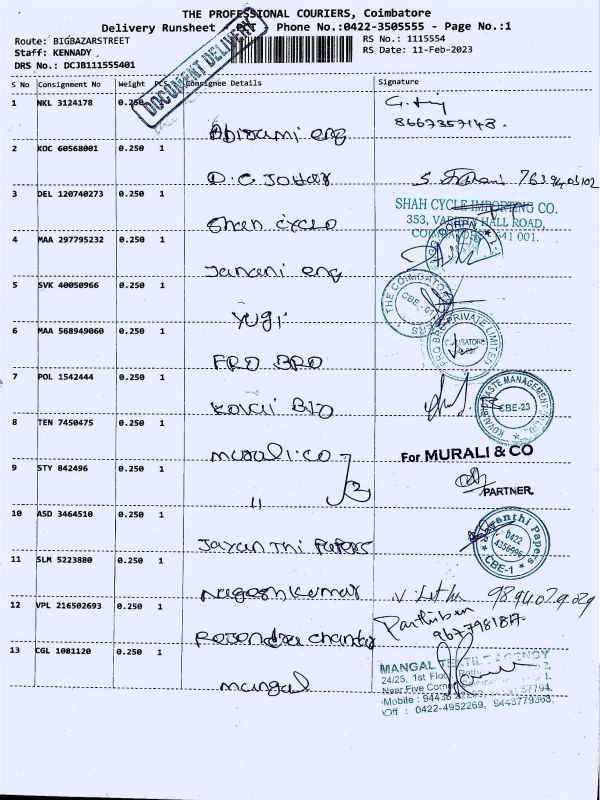 THE PROFESSIONAL COURIERS, Coimbatore
Delivery Runsheet - PCT - Phone No.:0422-3505555 - Page No.:1
Route: BIGBAZARSTREET RS No.: 1115554
Staff: KENNADY RS Date: 11-Feb-2023
DRS No.: DCJB111555401
DOCUMENT DELIVERY
S No Consignment No Weight PCS Consignee Details Signature
1 NKL 3124178 0.250
8667357148.
Abirami eng
2 KOC 60568001 0.250 1
D.C Johar
3 DEL 120740273 0.250 1
SHAH CYCLE IMPORTING CO.
353, HALL ROAD,
641 001.
Shah cycle
4 MAA 297795232 0.250 1
Janani eng
5 SVK 40050966 0.250 1
THE COIMBATORE
CBE - 01
yugi
6 MAA 568949060 0.250 1
PRIVATE LIMITED
FRO BRO
7 POL 1542444 0.250 1
WASTE MANAGEMENT
CBE-23
Kovai Bio
8 TEN 7450475 0.250 1
murali.co
For MURALI & CO
9 STY 842496 0.250 1
PARTNER.
11
10 ASD 3464510 0.250 1
Jayanthi Papers
Jayanthi Papers
0422
4350996
CBE-1
11 SLM 5223880 0.250 1
Nageshkumar
12 VPL 216502693 0.250 1
Parthiban
Rajendra chandar
13 CGL 1081120 0.250 1
MANGAL TEXTILE AGENCY
24/25, 1st Floor
Near Five Corner
Mobile : 57794,
Off : 0422-4952269, 9443779363,
mangal